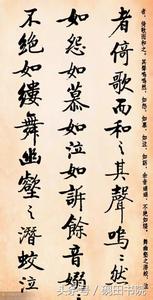 者，倚歌而和之。其聲嗚嗚然，如怨、如慕，如泣、如訴，余音嫋嫋，不絕如縷。舞幽壑之潛蛟，泣
者倚歌而和之其聲嗚〻然
如怨如慕如泣如訴餘音嫋〻
不絕如縷舞幽壑之潛蛟泣
头条号